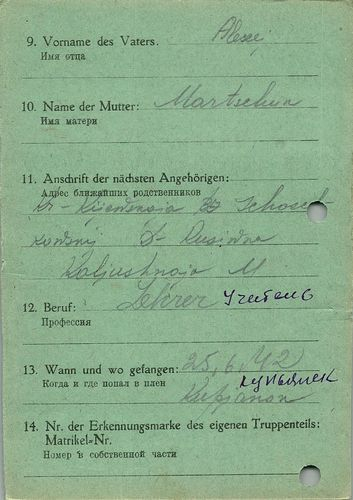 9. Vorname des Vaters. Alexej
Имя отца
10. Name der Mutter: Martschun
Имя матери
11. Anschrift der nächsten Angehörigen:
Адрес ближайших родственников
Kr-Kijewskaja Schosch
D-
Kaljushnaja M
12. Beruf: Lehrer Учитель
Профессия
13. Wann und wo gefangen: 25,6,42
Когда и где попал в плен Купьянск
Kupjansk
14. Nr. der Erkennungsmarke des eigenen Truppenteils:
Matrikel-Nr.
Номер в собственной части